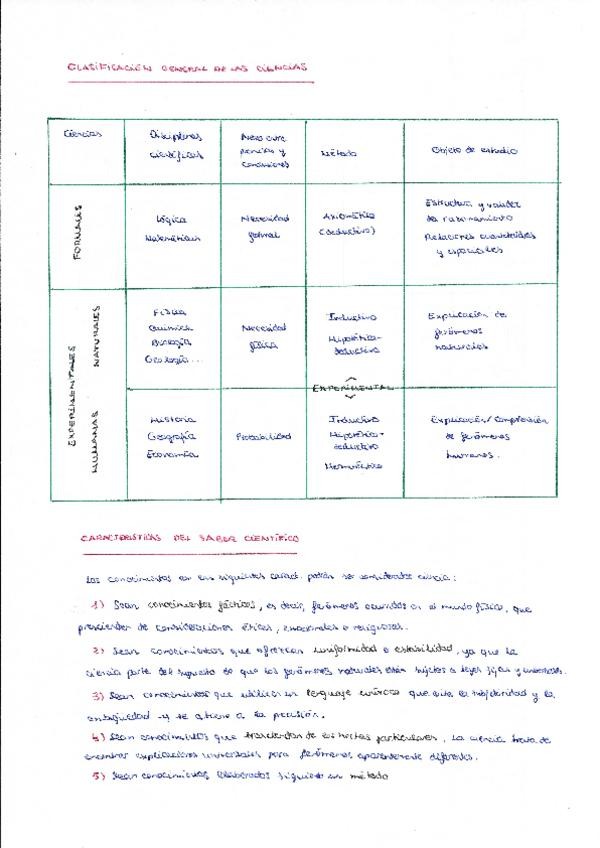 CLASIFICACIÓN GENERAL DE LAS CIENCIAS
Ciencias
Disciplinas
científicas
Nexo entre
premisas y
conclusiones
Método
Objeto de estudio
FORMALES
Lógica
Matemáticas
Necesidad
formal
Axiomático
(deductivo)
Estructura y validez
del razonamiento
Relaciones cuantitativas
y espaciales
EXPERIMENTALES
NATURALES
Física
Química
Biología
Geología...
Necesidad
física
Inductivo
Hipotético-
deductivo
Explicación de
fenómenos
naturales
EXPERIMENTAL
HUMANAS
Historia
Geografía
Economía
Probabilidad
Inductivo
Hipotético-
deductivo
Hermenéutico
Explicación/Comprensión
de fenómenos
humanos.
CARACTERÍSTICAS DEL SABER CIENTÍFICO
Los conocimientos con las siguientes caract. podrán ser considerados ciencia:
1) Sean conocimientos fácticos, es decir, fenómenos ocurridos en el mundo físico, que
prescinden de consideraciones éticas, emocionales o religiosas.
2) Sean conocimientos que ofrezcan uniformidad o estabilidad, ya que la
ciencia parte del supuesto de que los fenómenos naturales están sujetos a leyes fijas y universales.
3) Sean conocimientos que utilicen un lenguaje unívoco que evite la subjetividad y la
ambigüedad y se atiene a la precisión.
4) Sean conocimientos que trasciendan de los hechos particulares. La ciencia trata de
encontrar explicaciones universales para fenómenos aparentemente diferentes.
5) Sean conocimientos elaborados siguiendo un método